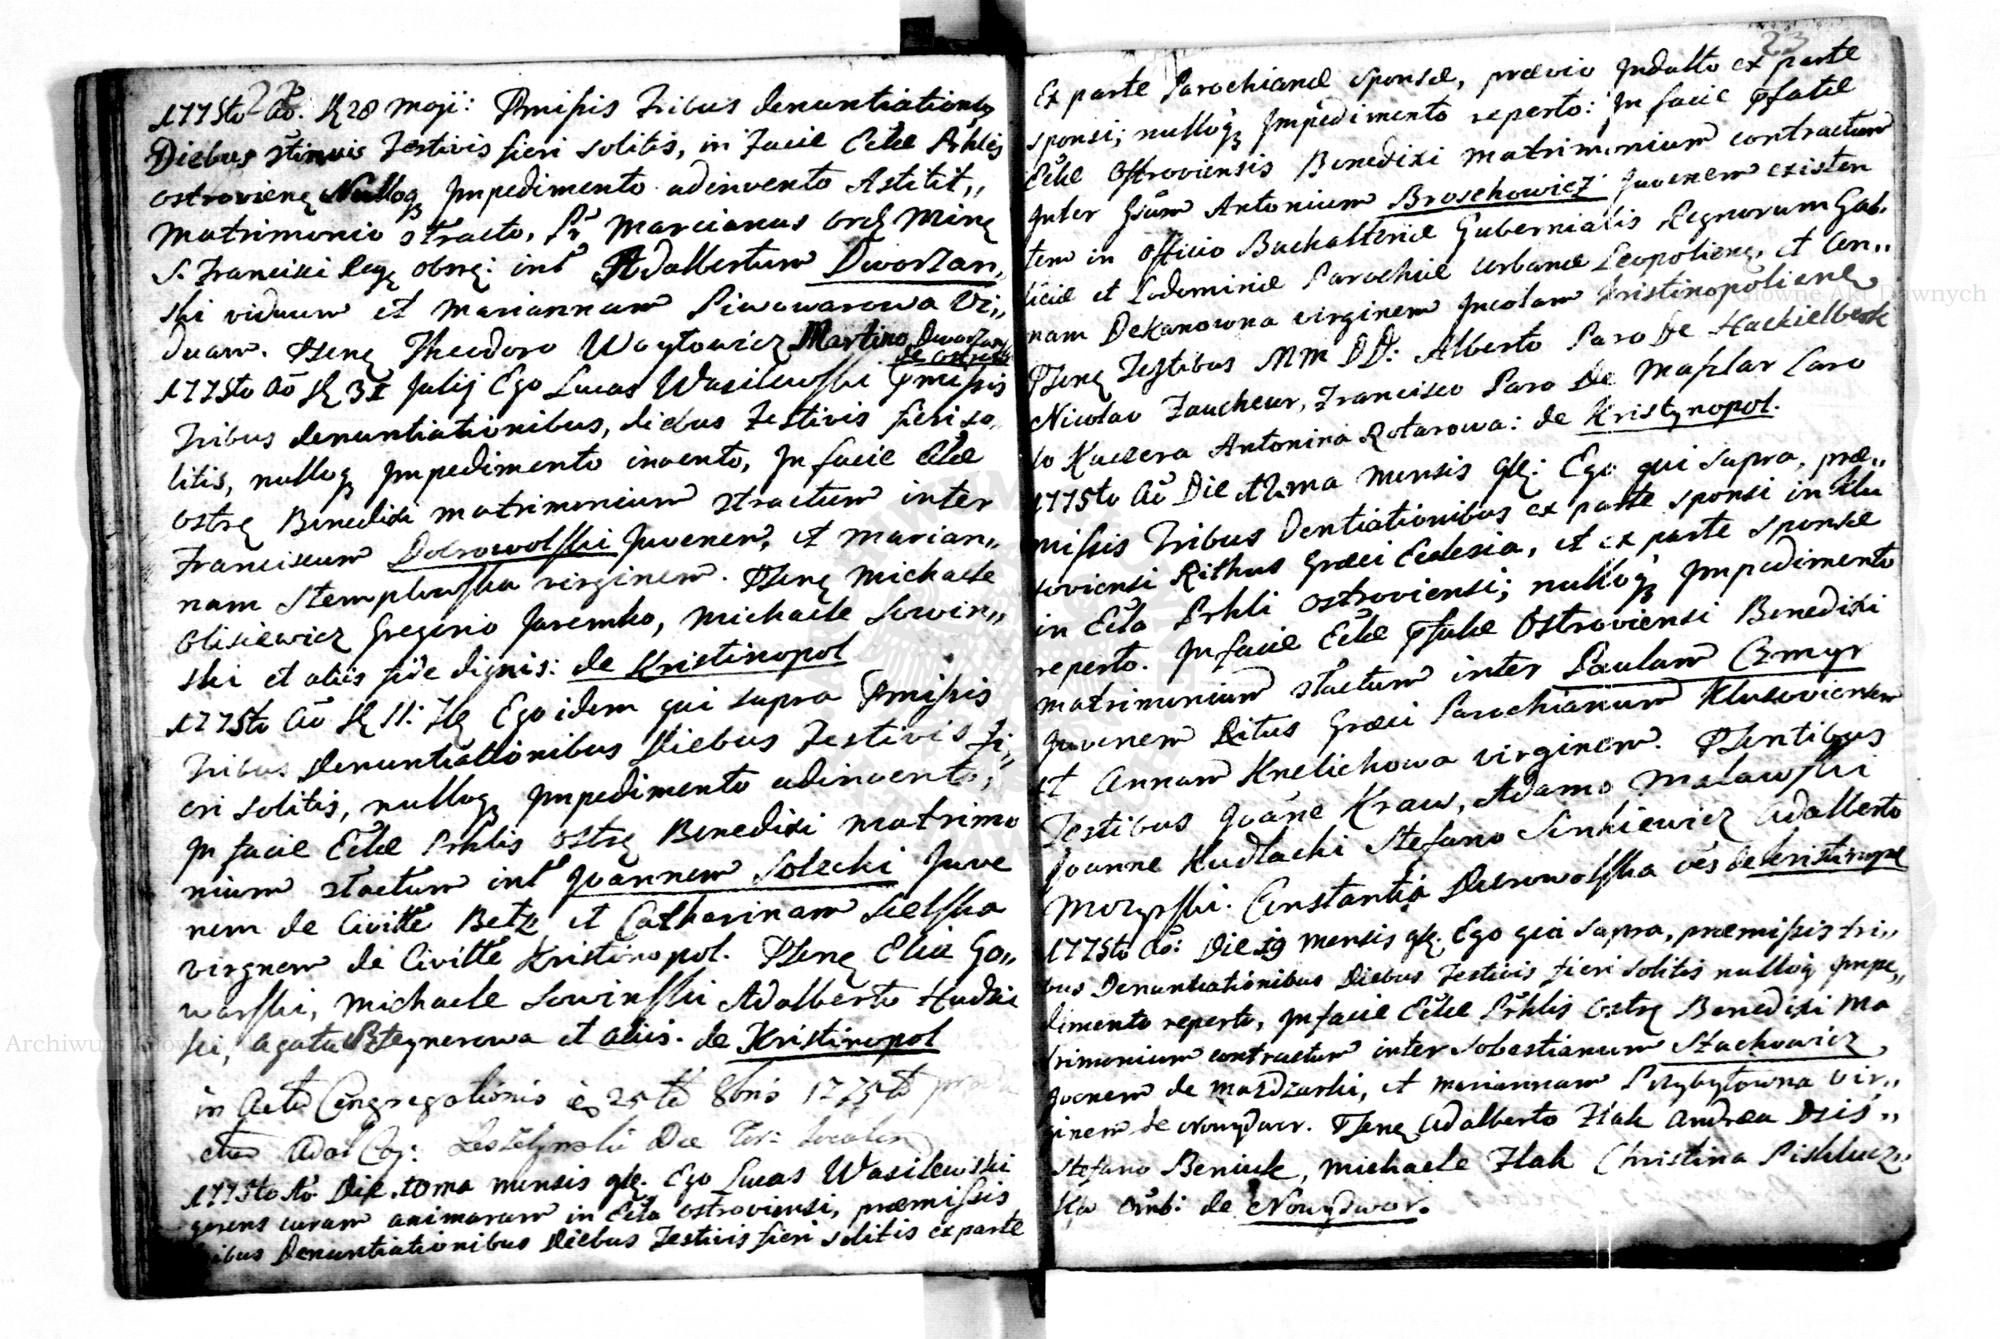 22
1775to Aõ. 28 Maji: Pmissis Tribus denuntiationby
Diebus Festivis fieri solitis, in Facie Eclæ Prhlis
Ostroviene Nulloq Impedimento adinvento Astitit,,
Matrimonio Stracto, Pr Marcianus Ord. Min
S. Francisci Reg. Obs: int Adalbertum Dworzan,,
ski viduum et Mariannam Piwowarowa Vi,,
duam. Psen Theodoro Woytowicz Martino Dworzan
de Ostrow
1775to aõ 31 Julij Ego Lucas Wasilewski Pmissis
Tribus denuntiationibus, diebus Festivis fieri so,,
litis, nulloq Impedimento invento, In facie Eclæ
Ostr Benedixi matrimonium Stractum inter
Franciscum Dobrowolski Juvenem, et Marian,,
nam Stemplowska virginem. Psen Michaele
Olisiewicz Gregorio Jaremko, Michaele Sowin,,
ski et aliis fide dignis: de Kristinopol
1775to Aõ 11: Ego idem qui supra Pmissis
Tribus Denuntiationibus Diebus Festivis Fi,,
eri solitis, nulloq Impedimento adinvento,
In facie Eclæ Prhlis Ostr Benedixi matrimo
nium Stractum int Joannem Solecki Juve
nem de Civitte Betz et Catharinam Sielska
virgnem de Civitte Kristinopol. Psen Elia Go,,
warski, Michaele Sowinski Adalberto Hudzi
ki, Agata Stegnerowa et aliis. de Kristinopol
in Actu Congregationis 25ta 8bris 1775to
1775to Aõ. Die 10ma mensis Ego Lucas Wasilewski
gerens curam animarum in Ecla Ostroviensi, præmissis
ribus Denuntiationibus Diebus Festivis fieri solitis ex parte
23
Ex parte Parochianæ sponsæ, prævio Indulto ex parte
sponsi; nulloq Impedimento reperto: In facie pfatæ
Eclæ Ostroviensis Benedixi matrimonium contractum
Inter Gsum Antonium Broschowicz Juvenem existen
tem in Officio Buchalteriæ Gubernialis Regnorum Gal.
liciæ et Lodomiriæ Parochiæ Urbanæ Leopoliens, et An,,
nam Dekanowna virginem Incolam Kristinopoliens
Psen Testibus MM DD: Alberto Paro De Hackielberk
Nicolao Faucheur, Francisco Paro De Maslar Caro
lo Kucera Antonina Rotarowa: de Kristynopol.
1775to Aõ Die 12ma mensis Ego qui supra, præ,,
missis Tribus Dentiationibus ex parte sponsi in Klu
soviensi Rithus Græci Ecclesia, et ex parte sponsæ
in Ecla Prhli Ostroviensi; nulloq Impedimento
reperto. In facie Eclæ pfatæ Ostroviensi Benedixi
matrimonium Stactum inter Paulum Czmyr
Juvenem Ritus Græci Parochianum Klusoviensem
et Annam Knelichowa virginem. Psentibus
Testibus Joãne Kraus, Adamo Malawski
Joanne Kudlacki Stefano Sinkiewicz Adalberto
Morynski. Constantia Dobrowolska oẽs de Kristinope
1775to Aõ: Die 19 mensis Ego qui supra, præmissis tri,,
bus Denuntiationibus Diebus Festivis fieri solitis nulloq Impe,,
dimento reperto, In facie Eclæ Prhlis Ostr Benedixi Ma
trimonium contractum inter Sobestianum Stachowicz
Juvenem de Mardzarki, et Mariannam Przybytowna vir,,
ginem de Nowydwor. Psen Adalberto Hak Andrea Dzis,,
Stefano Beniuk, Michaele Hak Christina Piskliucz,,
ka Omb: de Nowydwor.